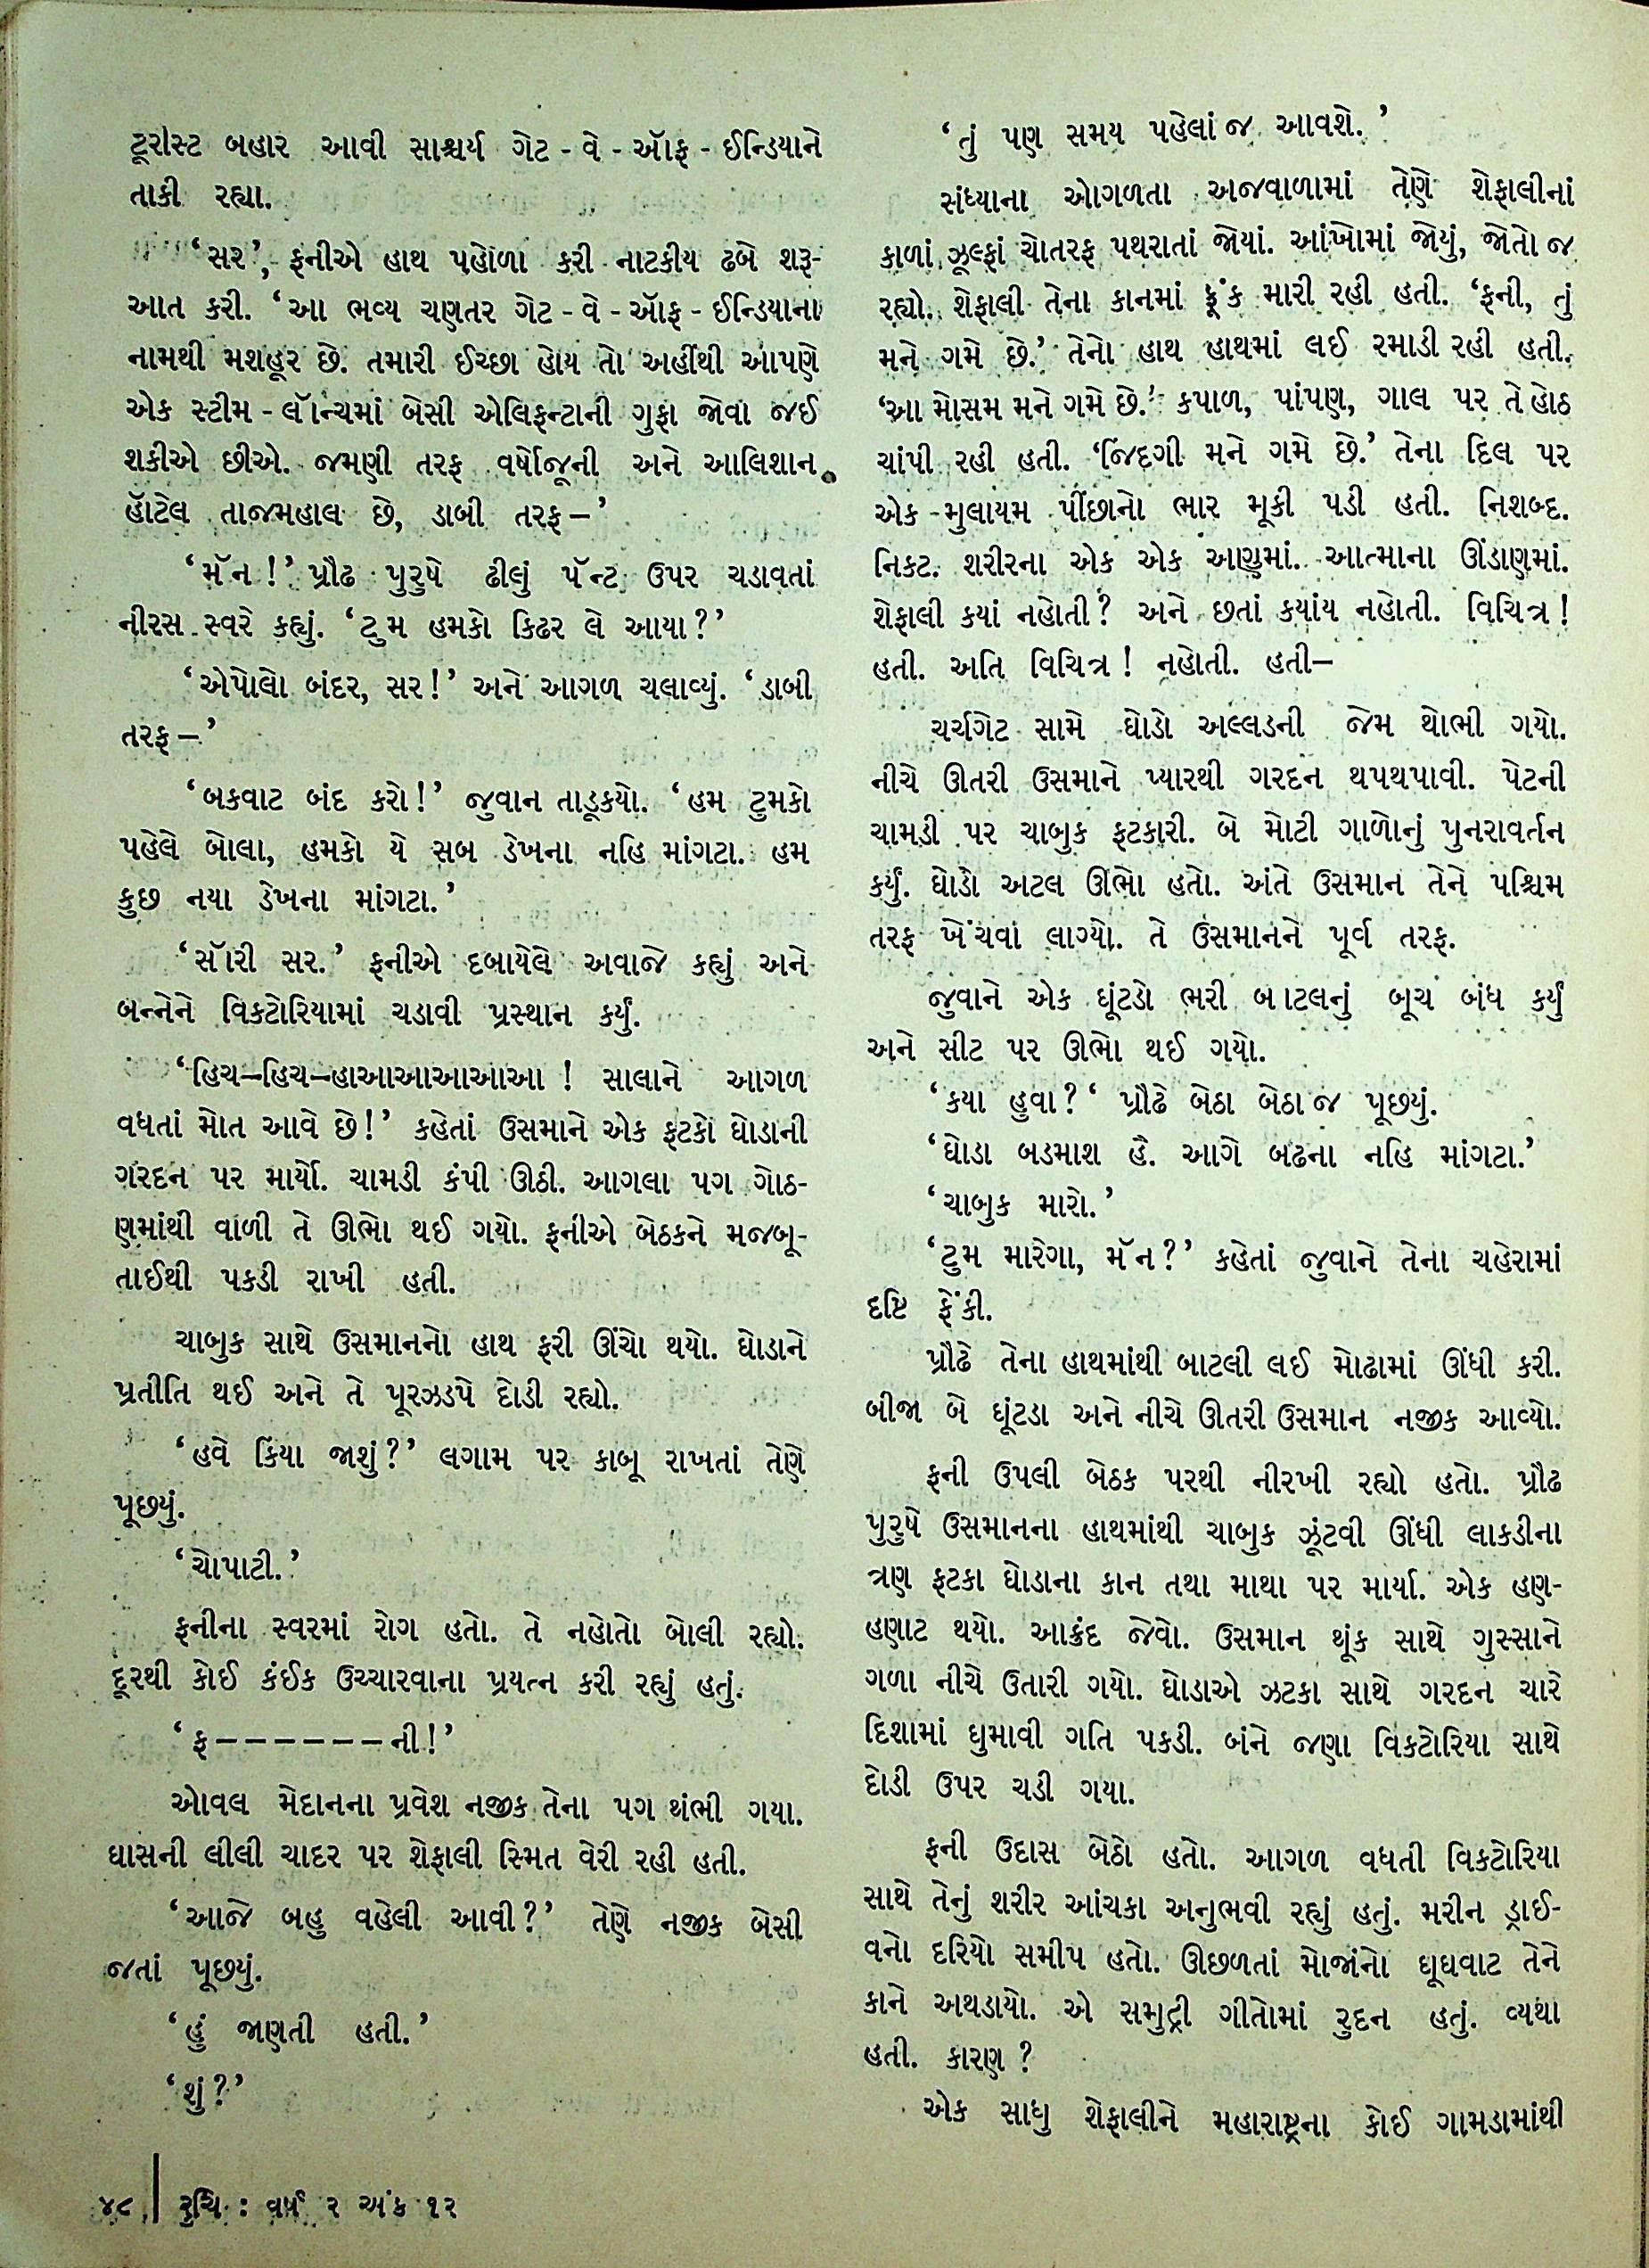 ટૂરીસ્ટ બહાર આવી સાશ્ચર્ય ગેટ - વે - ઑફ - ઈન્ડિયાને
તાકી રહ્યા.
‘સર’, ફનીએ હાથ પહોળા કરી નાટકીય ઢબે શરૂ-
આત કરી. ‘આ ભવ્ય ચણતર ગેટ - વે - ઑફ - ઈન્ડિયાના
નામથી મશહૂર છે. તમારી ઈચ્છા હોય તો અહીંથી આપણે
એક સ્ટીમ - લૉન્ચમાં બેસી એલિફન્ટાની ગુફા જોવા જઈ
શકીએ છીએ. જમણી તરફ વર્ષોજૂની અને આલિશાન
હૉટેલ તાજમહાલ છે, ડાબી તરફ –’
‘મૅન !’ પ્રૌઢ પુરુષે ઢીલું પૅન્ટ ઉપર ચડાવતાં
નીરસ સ્વરે કહ્યું. ‘ટુમ હમકો કિઢર લે આયા ?’
‘એપોલો બંદર, સર !’ અને આગળ ચલાવ્યું. ‘ડાબી
તરફ –’
‘બકવાટ બંદ કરો !’ જુવાન તાડૂકયો. ‘હમ ટુમકો
પહેલે બોલા, હમકો યે સબ ડેખના નહિ માંગટા. હમ
કુછ નયા ડેખના માંગટા.’
‘સૉરી સર.’ ફનીએ દબાયેલે અવાજે કહ્યું અને
બન્નેને વિકટોરિયામાં ચડાવી પ્રસ્થાન કર્યું.
‘હિચ–હિચ–હાઆઆઆઆઆ ! સાલાને આગળ
વધતાં મોત આવે છે !’ કહેતાં ઉસમાને એક ફટકો ઘોડાની
ગરદન પર માર્યો. ચામડી કંપી ઊઠી. આગલા પગ ગોઠ-
ણમાંથી વાળી તે ઊભો થઈ ગયો. ફનીએ બેઠકને મજબૂ-
તાઈથી પકડી રાખી હતી.
ચાબુક સાથે ઉસમાનનો હાથ ફરી ઊંચો થયો. ઘોડાને
પ્રતીતિ થઈ અને તે પૂરઝડપે દોડી રહ્યો.
‘હવે કિંયા જાશું ?’ લગામ પર કાબૂ રાખતાં તેણે
પૂછયું.
‘ચોપાટી.’
ફનીના સ્વરમાં રોગ હતો. તે નહોતો બોલી રહ્યો.
દૂરથી કોઈ કંઈક ઉચ્ચારવાના પ્રયત્ન કરી રહ્યું હતું.
‘ફ – – – – – – ની !’
ઓવલ મેદાનના પ્રવેશ નજીક તેના પગ થંભી ગયા.
ઘાસની લીલી ચાદર પર શેફાલી સ્મિત વેરી રહી હતી.
‘આજે બહુ વહેલી આવી ?’ તેણે નજીક બેસી
જતાં પૂછયું.
‘હું જાણતી હતી.’
‘શું ?’
‘તું પણ સમય પહેલાં જ આવશે.’
સંધ્યાના ઓગળતા અજવાળામાં તેણે શેફાલીનાં
કાળાં ઝૂલ્ફાં ચોતરફ પથરાતાં જોયાં. આંખોમાં જોયું, જોતો જ
રહ્યો. શેફાલી તેના કાનમાં ફૂંક મારી રહી હતી. ‘ફની, તું
મને ગમે છે.’ તેનો હાથ હાથમાં લઈ રમાડી રહી હતી.
‘આ મોસમ મને ગમે છે.’ કપાળ, પાંપણ, ગાલ પર તે હોઠ
ચાંપી રહી હતી. ‘જિંદગી મને ગમે છે.’ તેના દિલ પર
એક મુલાયમ પીંછાનો ભાર મૂકી પડી હતી. નિશબ્દ.
નિકટ. શરીરના એક એક અણુમાં. આત્માના ઊંડાણમાં.
શેફાલી કયાં નહોતી ? અને છતાં કયાંય નહોતી. વિચિત્ર !
હતી. અતિ વિચિત્ર ! નહોતી. હતી–
ચર્ચગેટ સામે ઘોડો અલ્લડની જેમ થોભી ગયો.
નીચે ઊતરી ઉસમાને પ્યારથી ગરદન થપથપાવી. પેટની
ચામડી પર ચાબુક ફટકારી. બે મોટી ગાળોનું પુનરાવર્તન
કર્યું. ઘોડો અટલ ઊભો હતો. અંતે ઉસમાન તેને પશ્ચિમ
તરફ ખેંચવા લાગ્યો. તે ઉસમાનને પૂર્વ તરફ.
જુવાને એક ઘૂંટડો ભરી બાટલનું બૂચ બંધ કર્યું
અને સીટ પર ઊભો થઈ ગયો.
‘કયા હુવા ?‘ પ્રૌઢે બેઠા બેઠા જ પૂછયું.
‘ઘોડા બડમાશ હૈ. આગે બઢના નહિ માંગટા.’
‘ચાબુક મારો.’
‘ટુમ મારેગા, મૅન ?’ કહેતાં જુવાને તેના ચહેરામાં
દષ્ટિ ફેંકી.
પ્રૌઢે તેના હાથમાંથી બાટલી લઈ મોઢામાં ઊંધી કરી.
બીજા બે ઘૂંટડા અને નીચે ઊતરી ઉસમાન નજીક આવ્યો.
ફની ઉપલી બેઠક પરથી નીરખી રહ્યો હતો. પ્રૌઢ
પુરુષે ઉસમાનના હાથમાંથી ચાબુક ઝૂંટવી ઊંધી લાકડીના
ત્રણ ફટકા ઘોડાના કાન તથા માથા પર માર્યા. એક હણ-
હણાટ થયો. આક્રંદ જેવો. ઉસમાન થૂંક સાથે ગુસ્સાને
ગળા નીચે ઉતારી ગયો. ઘોડાએ ઝટકા સાથે ગરદન ચારે
દિશામાં ઘુમાવી ગતિ પકડી. બંને જણા વિકટોરિયા સાથે
દોડી ઉપર ચડી ગયા.
ફની ઉદાસ બેઠો હતો. આગળ વધતી વિકટોરિયા
સાથે તેનું શરીર આંચકા અનુભવી રહ્યું હતું. મરીન ડ્રાઈ-
વનો દરિયો સમીપ હતો. ઊછળતાં મોજાંનો ઘૂઘવાટ તેને
કાને અથડાયો. એ સમુદ્રી ગીતોમાં રુદન હતું. વ્યથા
હતી. કારણ ?
એક સાધુ શેફાલીને મહારાષ્ટ્રના કોઈ ગામડામાંથી
૪૮ | રુચિ : વર્ષ ૨ અંક ૧૨